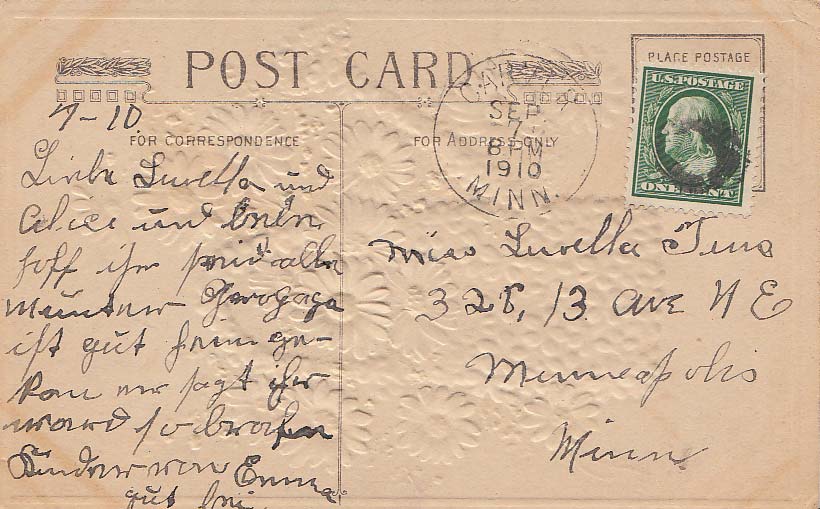 POST CARD
PLACE POSTAGE
FOR CORRESPONDENCE
FOR ADDRESS ONLY
SEP
7
8 PM
1910
MINN.
U.S. POSTAGE
ONE CENT
7-10
Liebe Luella und
Alice und
hoff ihr seid alle
munter
ist gut heim ge-
er sagt ihr
ward so
Kinder
Emma
gut
Miss Luella
328, 13 Ave N E
Minneapolis
Minn